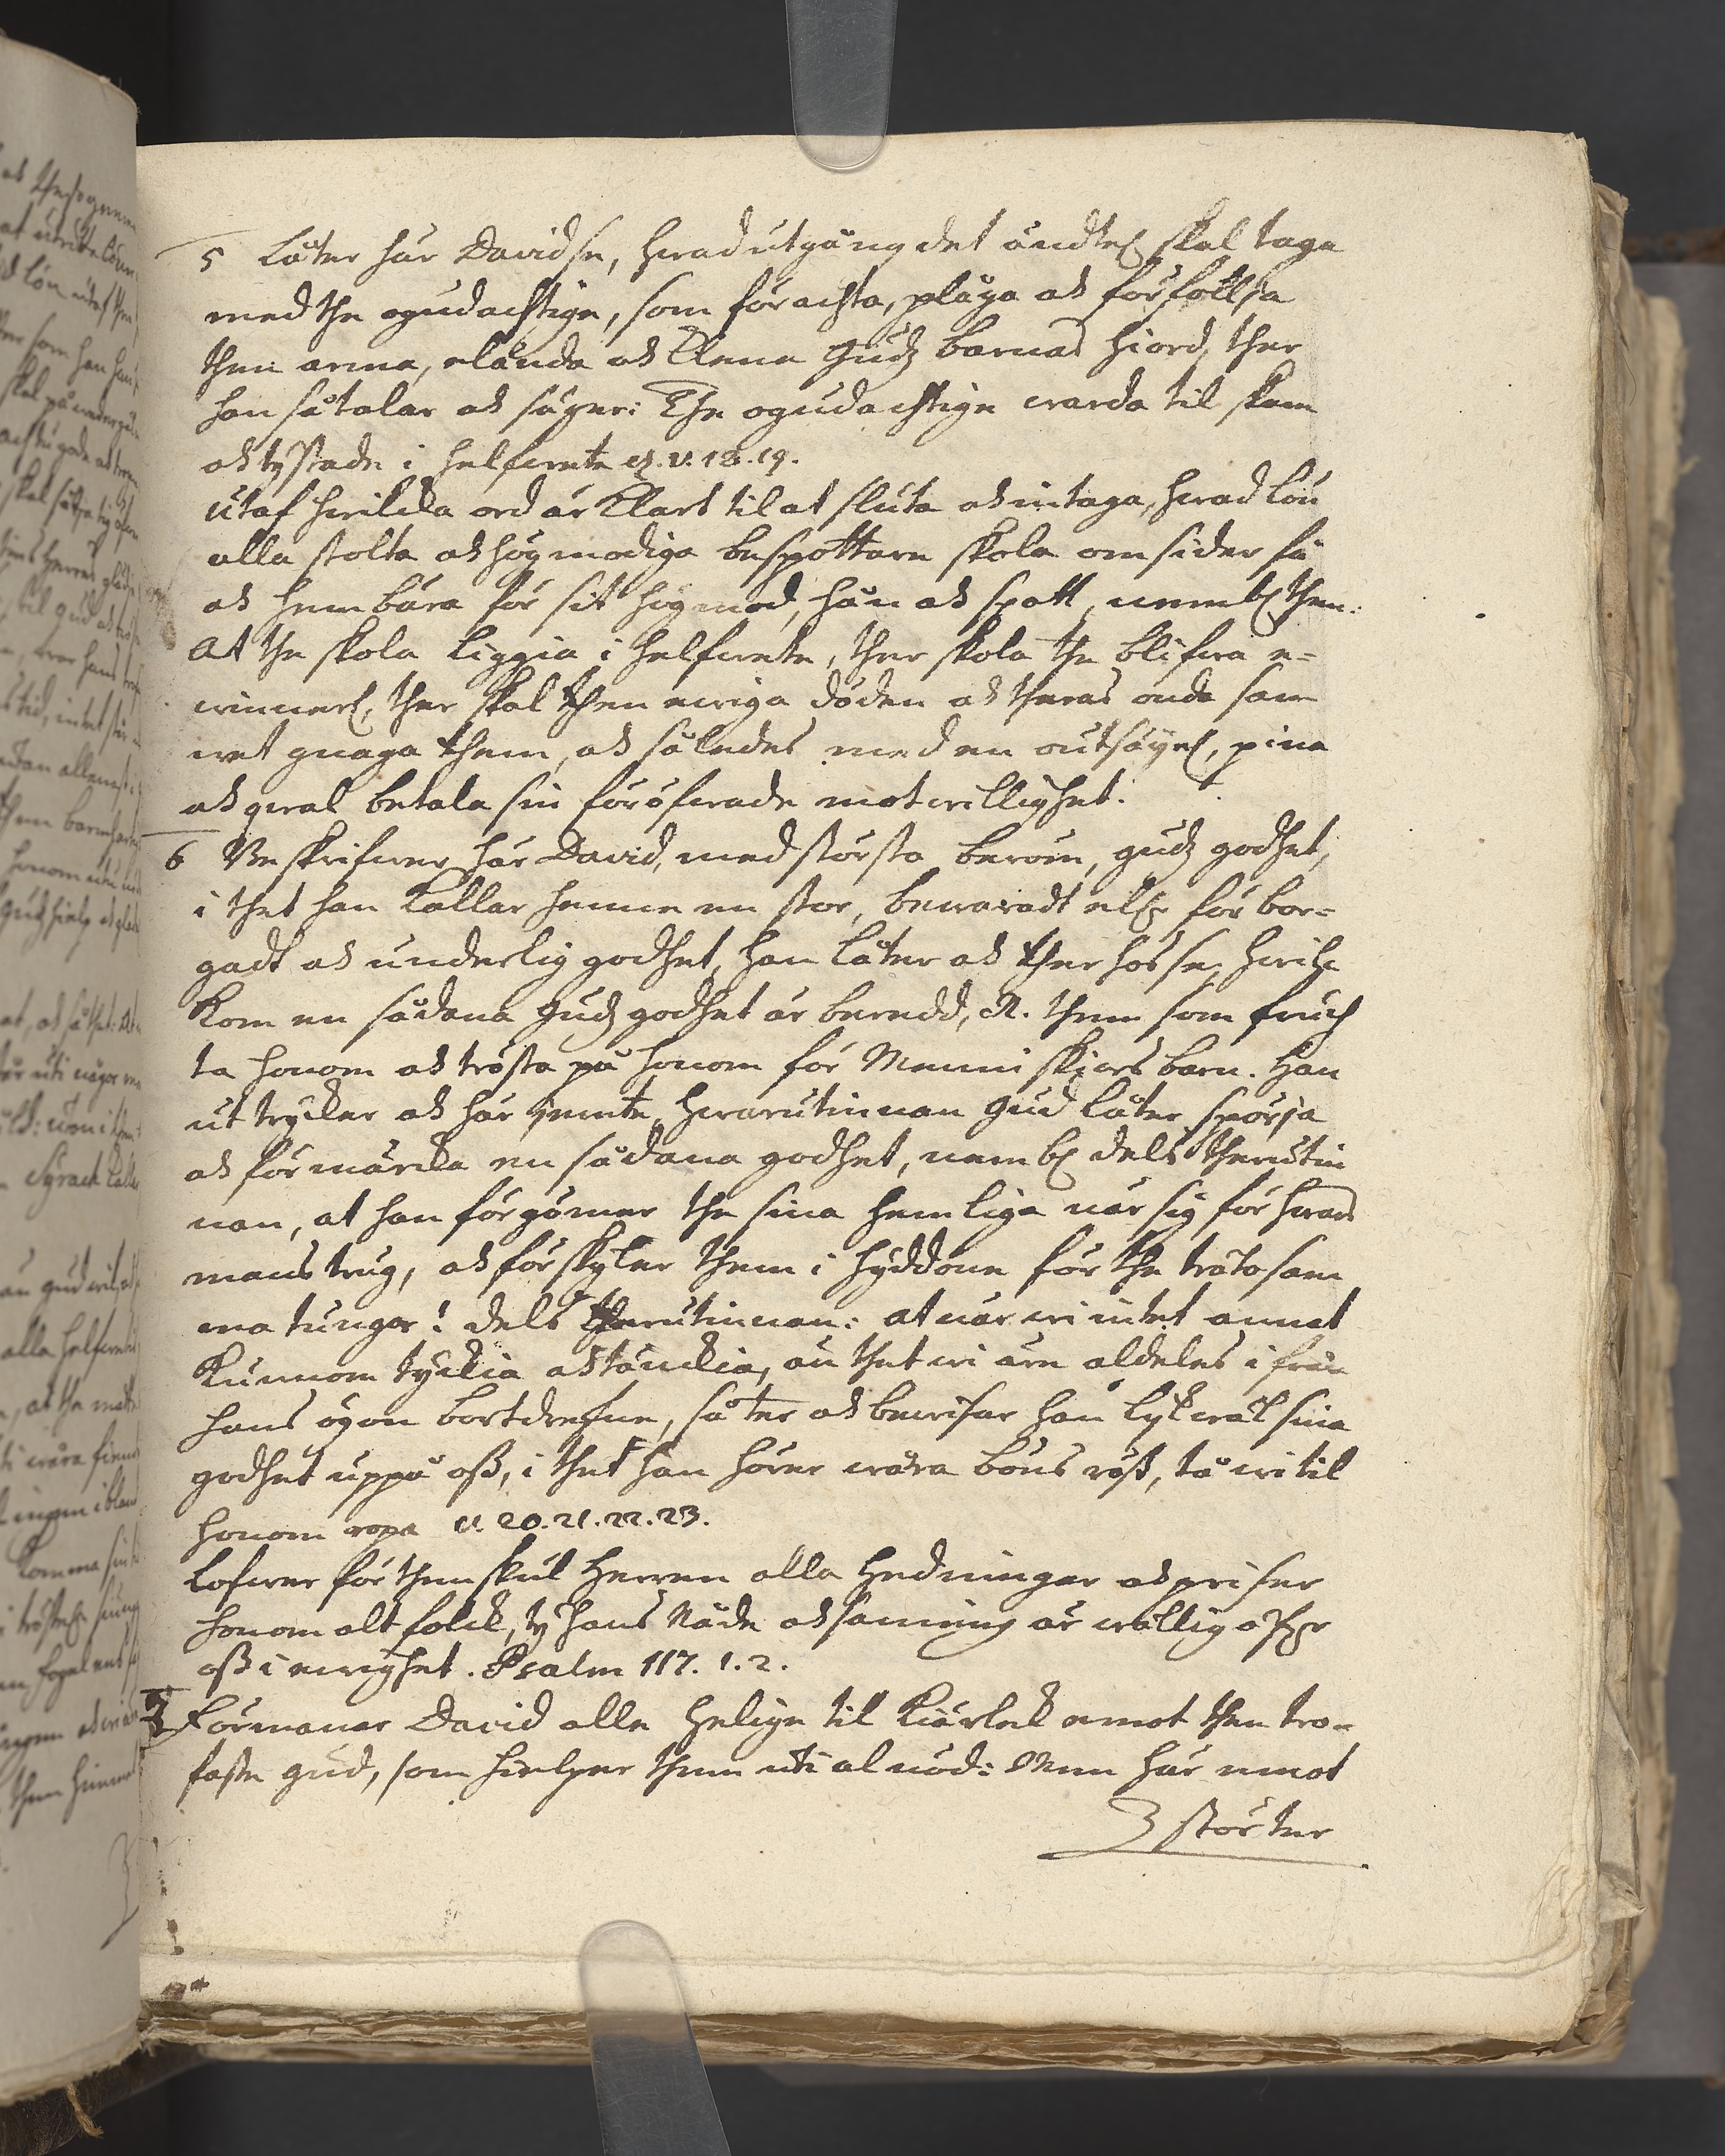 5 Låter här David se, hwad utgång det ändtel skal taga
med the ogudachtige, som förachta, plåga ock förföllja
then arma, elända ock klena Gudz barnas hiord, ther
han så talar ock säger: The ogudachtige warda til skam
ock tystade i helfwete ej. v. 18. 19.
Utaf hwilcka ord är klart til at sluta ock intaga, hwad lön
alla stolta ock högmodiga bespottare skola omsider få
ock hembära för sit högmod, hån ock spott, nembl then:
At the skola liggia i helfwete, ther skola the blifwa e-
winnerl, ther skal then ewiga döden ock theras onda sam
wet gnaga them, ock således med en outsäyel, pina
ock qwal betala sin föröfwade motwillighet.
6 Beskrifwer här David, med största beröm, Gudz godhet,
i thet han kallar henne en stor, bewaradt eller förbor-
gadt ock underlig godhet, han låter ock ther hos se, hwil-
kom en sådana Gudz godhet är beredd, N. them som fruch
ta honom ock trösta på honom för Menniskiors barn. Han
uttrycker ock här jemte, hwarutinnan Gud låter spörja
ock förmärcka en sådana godhet, nembl dels therutin
nan, at han förgömer the sina hemliga när sig för hwars
mans trug, ock förskyler them i hyddone för the trätosam
ma tungor! dels therutinnan: at när wi intet annat
kunnom tyckia ock tänckia, än thet wi äre aldeles ifrån
hans ögon bortdrefne, så ter ock bewisar han lyckwäl sina
godhet uppå oss, i thet han hörer wåra böns röst, tå wi til
honom ropa v. 20. 21. 22. 23.
Lofwer för then skul Herren alla hedningar ock priser
honom alt folck, ty hans Nåde ock sanning är wällig öfwer
oss i ewighet. Psalm 117. 1. 2.
7 Förmanar David alla helige til kiärlek emot then tro-
faste Gud, som hielper them uti al nöd: Men här emot
störter